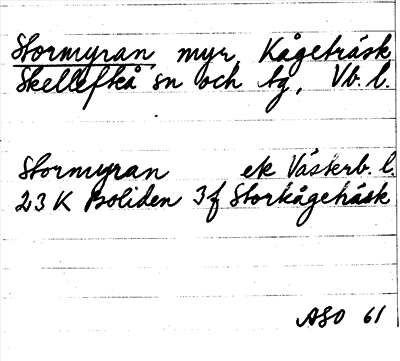 Stormyran myr, Kågeträsk
Skellefteå sn och tg, Vb. l.
Stormyran ek Västerb. l.
23 K Boliden 3f Storkågeträsk
ASO 61